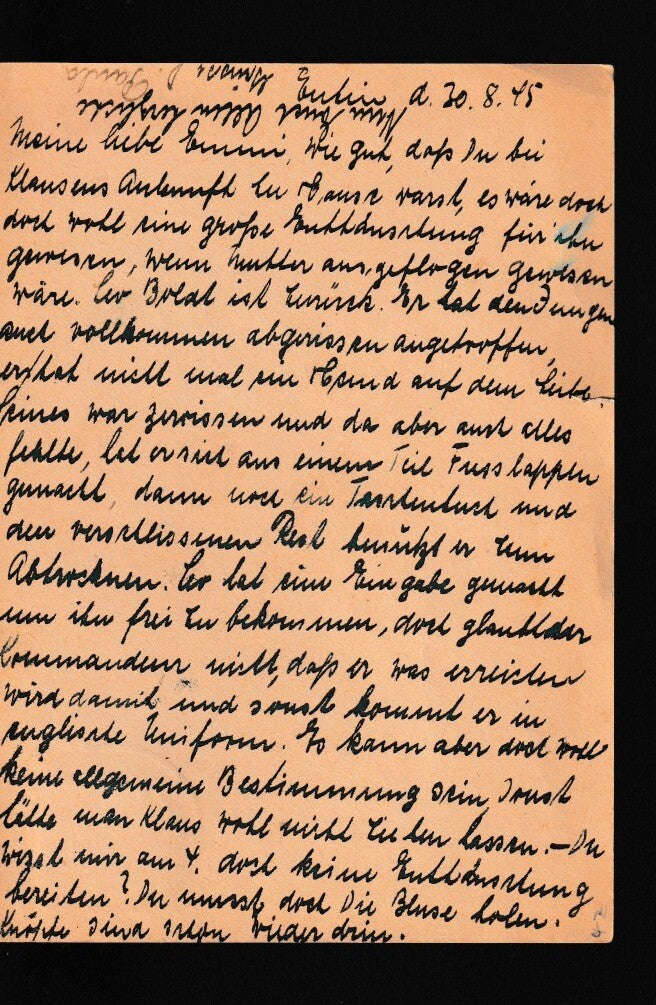 Eutin d. 30.8.45
Meine liebe Emmi, wie gut, daß Du bei
Klausens Ankunft zu Hause warst, es wäre doch
doch wohl eine große Enttäuschung für ihn
gewesen, wenn Mutter ausgeflogen gewesen
wäre. Boldt ist zurück. Er hat den Jungen
auch vollkommen abgerissen angetroffen,
er hat nicht mal ein Hemd auf dem Leibe.
Seines war zerrissen und da aber auch alles
fehlte, hat er sich aus einem Teil Fusslappen
gemacht, dann noch ein Taschentuch und
den verschlissenen Rest benützt er zum
Abtrocknen. hat eine Eingabe gemacht
um ihn frei zu bekommen, doch glaubt der
Kommandeur nicht, daß er was erreichen
wird damit und sonst kommt er in
englische Uniform. Es kann aber doch wohl
keine allgemeine Bestimmung sein, sonst
hätte man Klaus wohl nicht ziehen lassen. – Du
wirst mir am 4. doch keine Enttäuschung
bereiten? Du musst doch Die Bluse holen.
Knöpfe sind schon wieder drin.